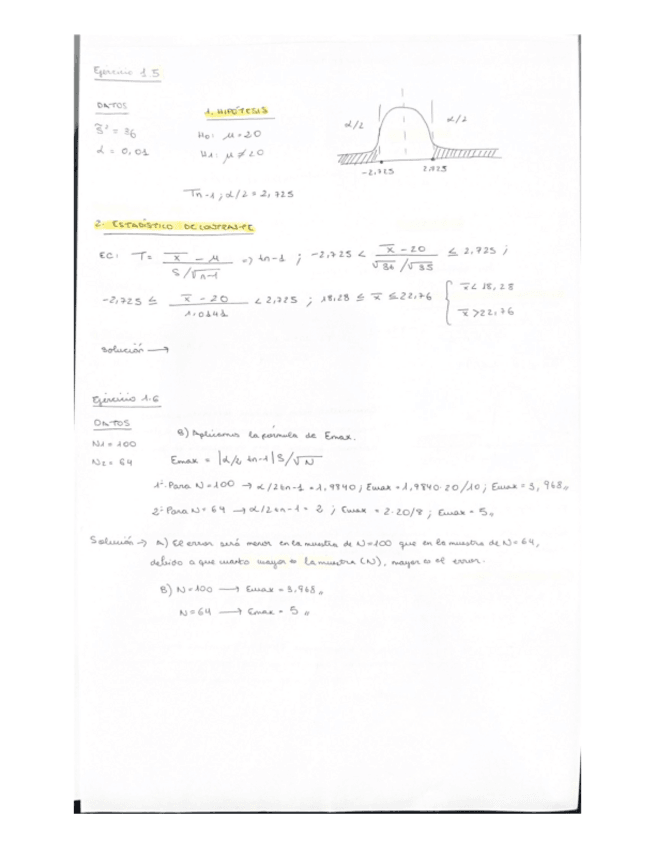 Ejercicio 1.5
DATOS
S' = 36
α = 0,01
1. HIPÓTESIS
H0: μ = 20
H1: μ ≠ 20
α/2
α/2
-2,725
2,725
Tn-1; α/2 = 2,725
2. ESTADÍSTICO DE CONTRASTE
EC: T = x̄ - μ / S/√n-1 => tn-1 ; -2,725 < x̄ - 20 / √36 /√35 ≤ 2,725 ;
-2,725 ≤ x̄ - 20 / 1,0141 < 2,725 ; 18,28 ≤ x̄ ≤ 22,76 { x̄ < 18,28
x̄ > 22,76
Solución →
Ejercicio 1.6
DATOS
N1 = 100
N2 = 64
B) Aplicamos la fórmula de Emax.
Emax = |α/2 tn-1| S/√N
1º Para N=100 → α/2 tn-1 = 1,9840 ; Emax = 1,9840·20/10 ; Emax = 3,968,,
2º Para N=64 → α/2 tn-1 = 2 ; Emax = 2·20/8 ; Emax = 5,,
Solución → A) El error será menor en la muestra de N=100 que en la muestra de N=64,
debido a que cuanto mayor es la muestra (N), mayor es el error.
B) N=100 → Emax = 3,968,,
N=64 → Emax = 5,,